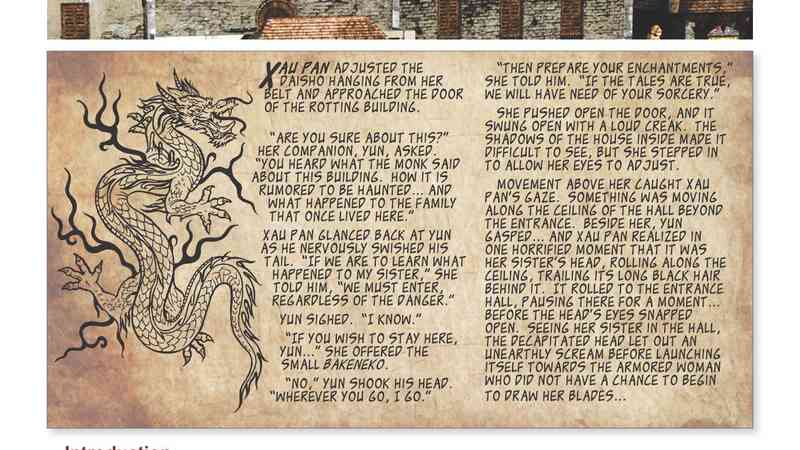 XAU PAN ADJUSTED THE
DAISHO HANGING FROM HER
BELT AND APPROACHED THE DOOR
OF THE ROTTING BUILDING.
"ARE YOU SURE ABOUT THIS?"
HER COMPANION, YUN, ASKED.
"YOU HEARD WHAT THE MONK SAID
ABOUT THIS BUILDING. HOW IT IS
RUMORED TO BE HAUNTED... AND
WHAT HAPPENED TO THE FAMILY
THAT ONCE LIVED HERE."
XAU PAN GLANCED BACK AT YUN
AS HE NERVOUSLY SWISHED HIS
TAIL. "IF WE ARE TO LEARN WHAT
HAPPENED TO MY SISTER," SHE
TOLD HIM, "WE MUST ENTER,
REGARDLESS OF THE DANGER."
YUN SIGHED. "I KNOW."
"IF YOU WISH TO STAY HERE,
YUN..." SHE OFFERED THE
SMALL BAKENEKO.
"NO," YUN SHOOK HIS HEAD.
"WHEREVER YOU GO, I GO."
"THEN PREPARE YOUR ENCHANTMENTS,"
SHE TOLD HIM. "IF THE TALES ARE TRUE,
WE WILL HAVE NEED OF YOUR SORCERY."
SHE PUSHED OPEN THE DOOR, AND IT
SWUNG OPEN WITH A LOUD CREAK. THE
SHADOWS OF THE HOUSE INSIDE MADE IT
DIFFICULT TO SEE, BUT SHE STEPPED IN
TO ALLOW HER EYES TO ADJUST.
MOVEMENT ABOVE HER CAUGHT XAU
PAN'S GAZE. SOMETHING WAS MOVING
ALONG THE CEILING OF THE HALL BEYOND
THE ENTRANCE. BESIDE HER, YUN
GASPED... AND XAU PAN REALIZED IN
ONE HORRIFIED MOMENT THAT IT WAS
HER SISTER'S HEAD, ROLLING ALONG THE
CEILING, TRAILING ITS LONG BLACK HAIR
BEHIND IT. IT ROLLED TO THE ENTRANCE
HALL, PAUSING THERE FOR A MOMENT...
BEFORE THE HEAD'S EYES SNAPPED
OPEN. SEEING HER SISTER IN THE HALL,
THE DECAPITATED HEAD LET OUT AN
UNEARTHLY SCREAM BEFORE LAUNCHING
ITSELF TOWARDS THE ARMORED WOMAN
WHO DID NOT HAVE A CHANCE TO BEGIN
TO DRAW HER BLADES...
Introduction